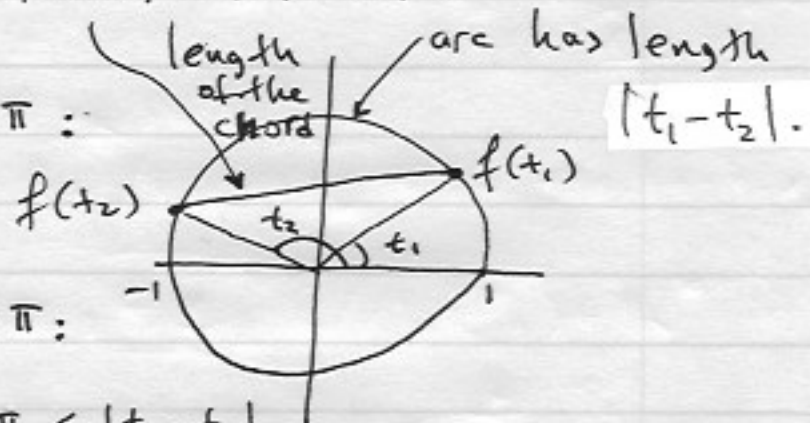 length
of the
chord
arc has length
|t₁-t₂|.
π :
f(t₁)
f(t₂)
t₂
t₁
-1
1
π :